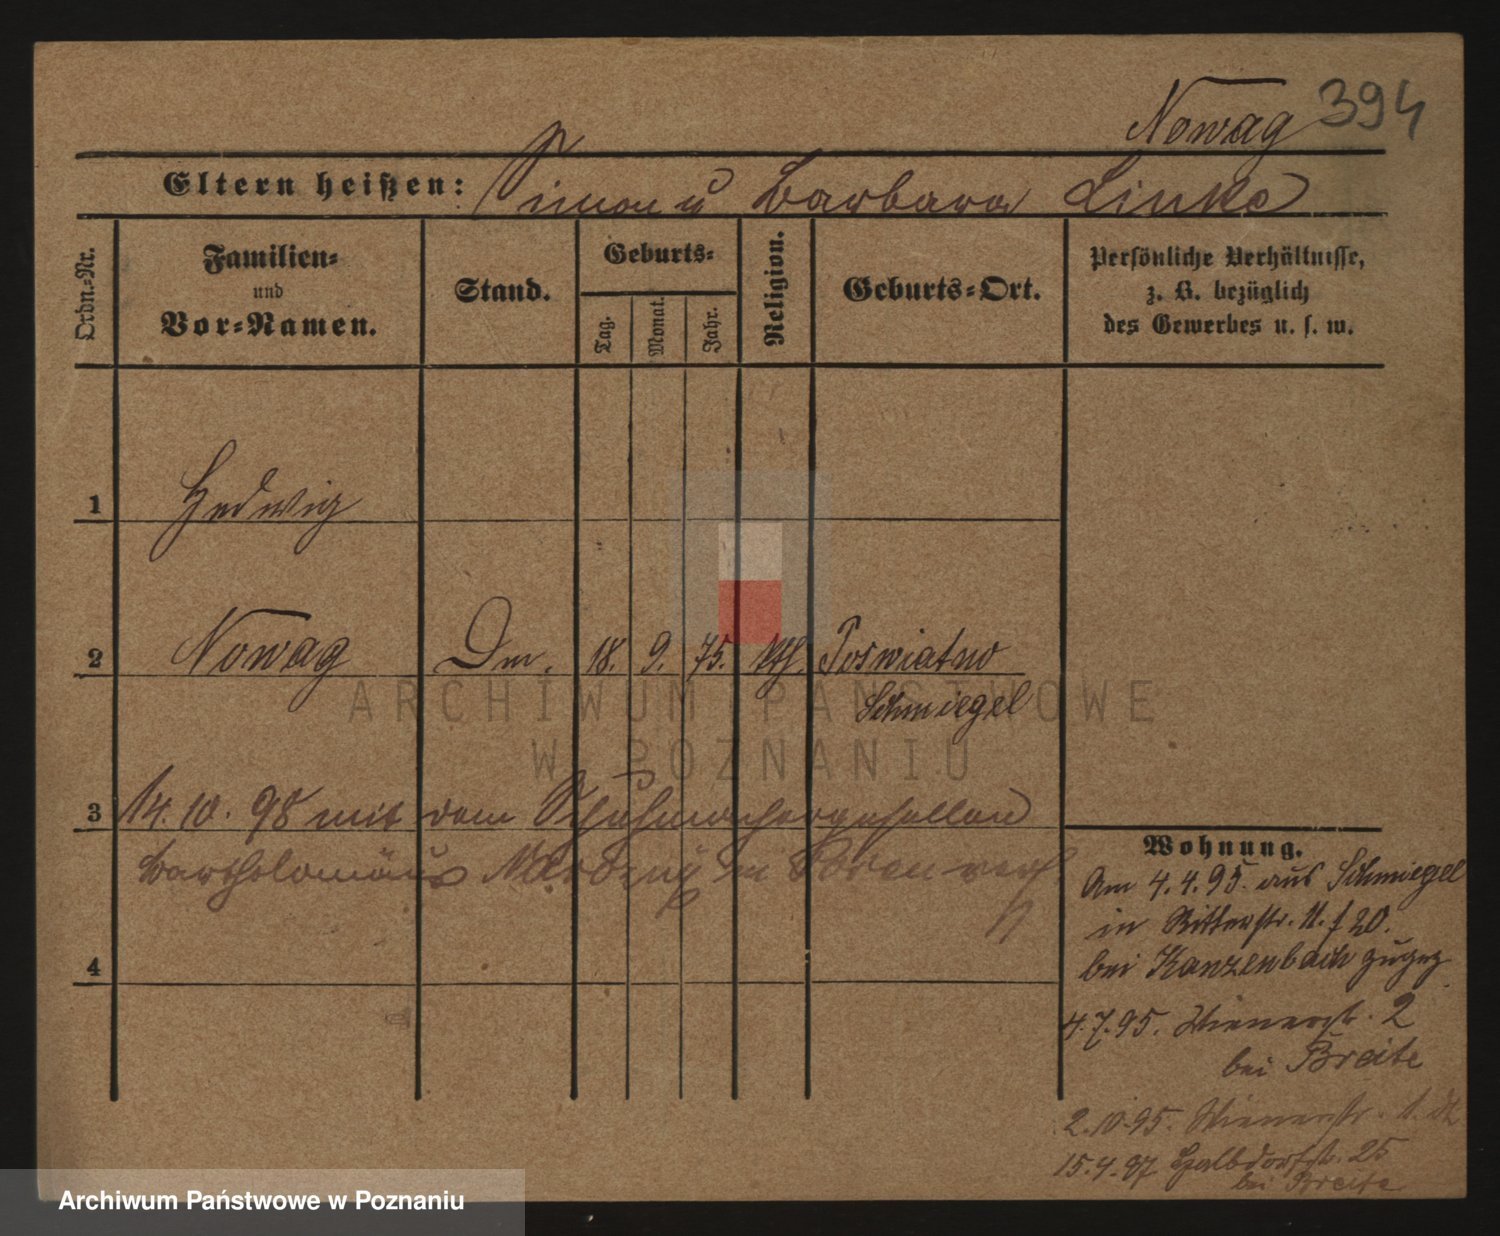 Nowag 394
Eltern heißen: Simon u Barbara Linke
Ordn.-Nr.
Familien-
und
Vor-Namen.
Stand.
Geburts-
Tag.
Monat.
Jahr.
Religion.
Geburts-Ort.
Persönliche Verhältnisse,
z. B. bezüglich
des Gewerbes u. s. w.
1 Hedwig
2 Nowag Dm. 18. 9. 75. kth. Poswiatno
Schmiegel
3 14.10.98 mit dem Schuhmachergesellen
Bartholomäus in Posen verh.
4
Wohnung.
Am 4.4.95. aus Schmiegel
in Ritterstr. 20.
bei Kanzenbach zugez
4.7.95. Wienerstr. 2
bei Breite
2.10.95. Wienerstr.
15.4.97 Halbdorfstr. 25
bei Breite
ARCHIWUM PAŃSTWOWE
W POZNANIU
Archiwum Państwowe w Poznaniu